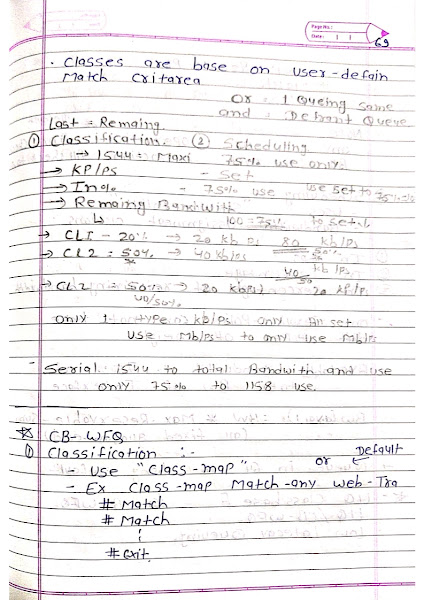 Page No.:
Date: 69
. Classes are base on user-defain
Match critarea
Or = 1 Queing Same
and = Defrant Queue
Last = Remaing
① Classification. ② Scheduling
→ 1544 = Maxi 75% use only.
→ KP/Ps - Set
→ In % - 75% use be set to 75%
→ Remaing Bandwith
↳ 100 = 75% to set.
→ CL1 - 20% → 20 kb = 80 kb/Ps
→ CL2 = 50% → 40 kb/Ps 50%
40 kb/Ps
50
→ CL2 = 50% → 20 kbps 20 kP/Ps
40/50%
only 1 type = kb/Ps only All set
use - Mb/Ps to only use Mb/Ps
- Serial 1544 to total Bandwith and use
only 75% to 1158 use.
CB-WFQ
① Classification :-
- Use "Class-map" or Default
- Ex Class-map Match-any Web-Tra
# Match
# Match
# exit.